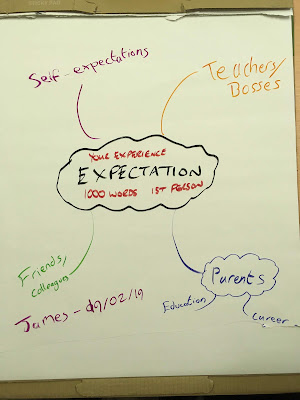 Self-expectations
Teachers/
Bosses
YOUR EXPERIENCE
EXPECTATION
1000 WORDS 1ST PERSON
Friends/
colleagues
Parents
Education
career
James - 09/02/19